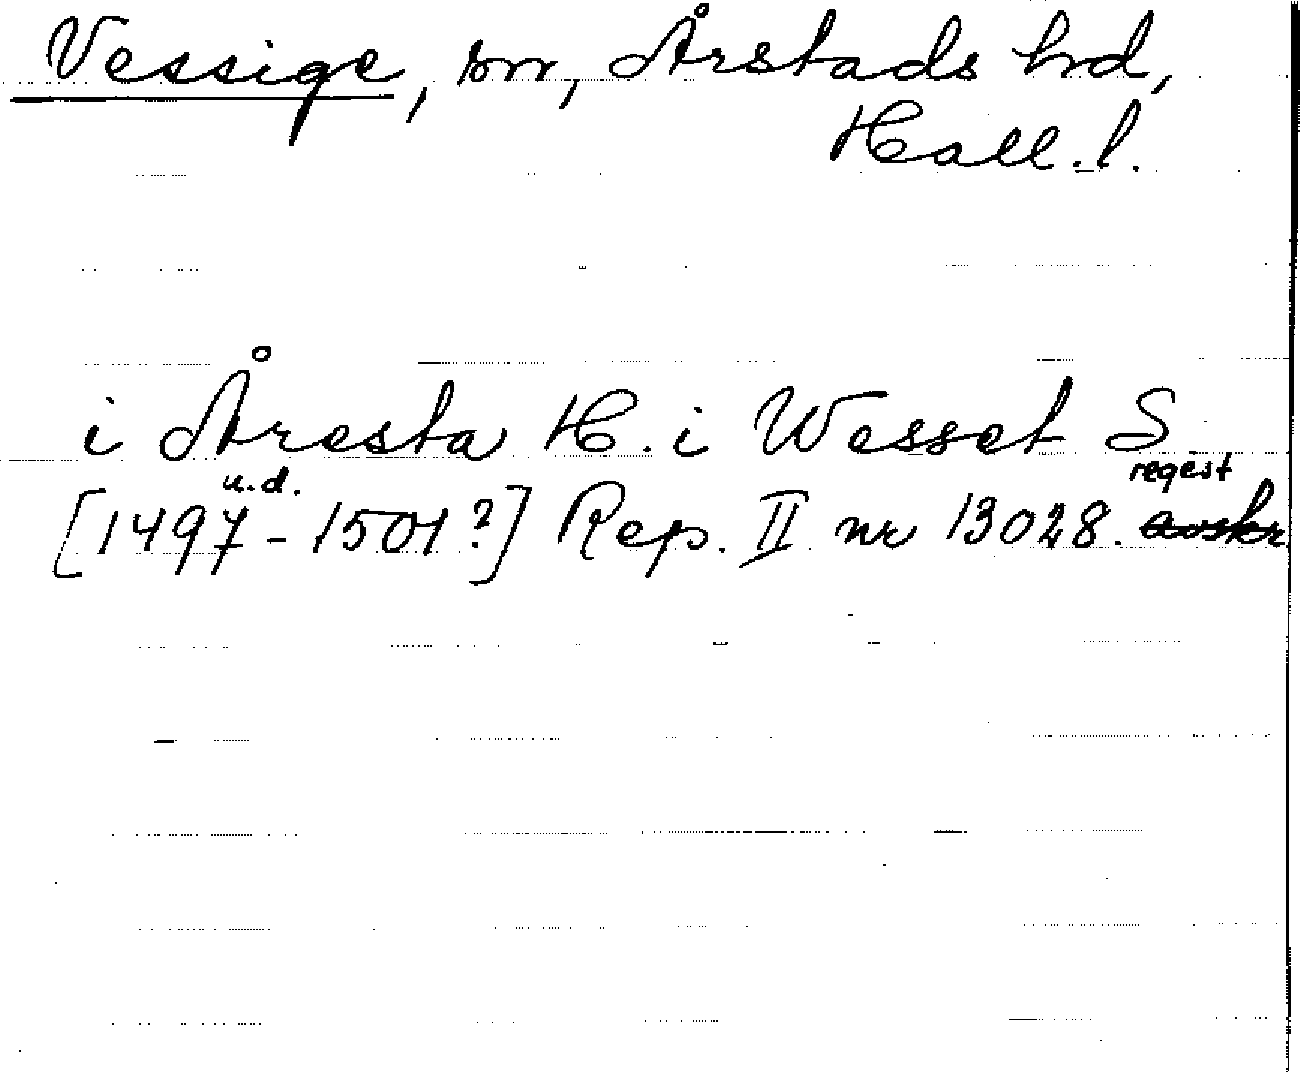 Vessige, sn, Årstads hd,
Hall. l.
i Åresta H. i Wesset S
u.d. regest
[1497 - 1501?] Rep. II nr 13028. avskr